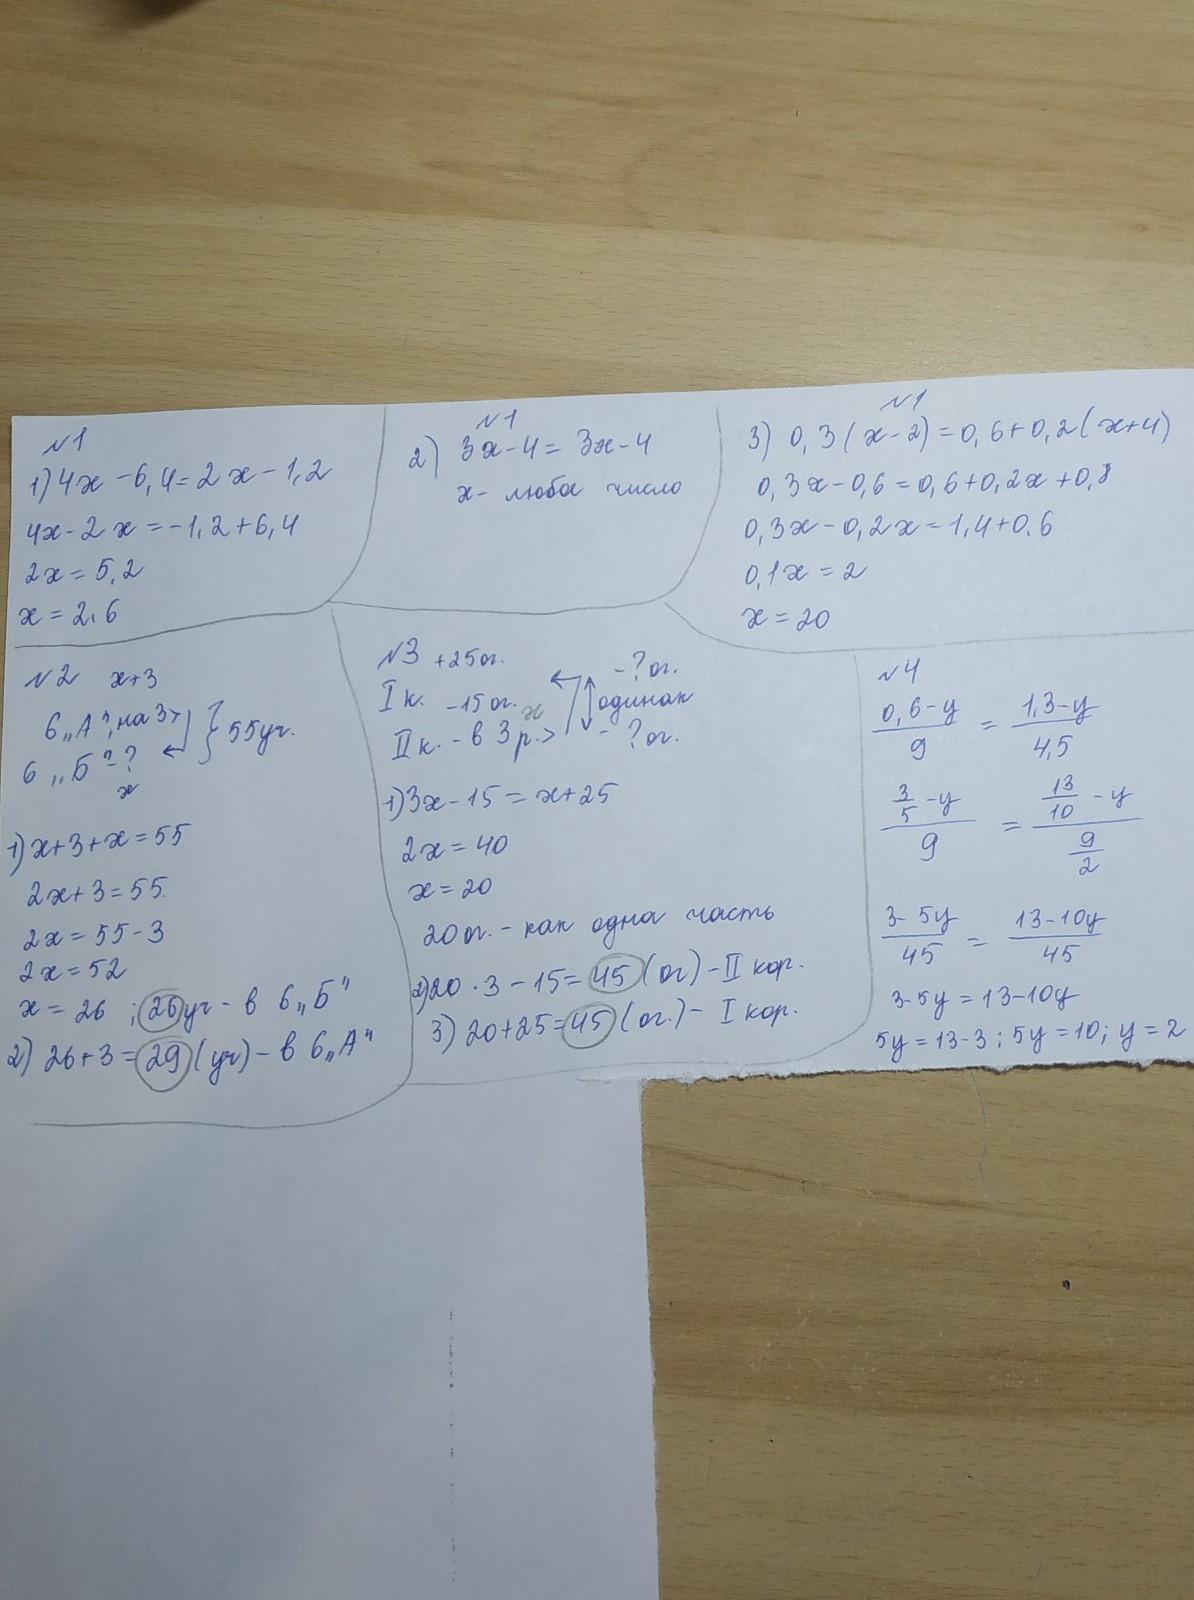 №1
1) 4x - 6,4 = 2x - 1,2
4x - 2x = -1,2 + 6,4
2x = 5,2
x = 2,6
№1
2) 3x - 4 = 3x - 4
x - любое число
№1
3) 0,3(x-2) = 0,6 + 0,2(x+4)
0,3x - 0,6 = 0,6 + 0,2x + 0,8
0,3x - 0,2x = 1,4 + 0,6
0,1x = 2
x = 20
№2 x+3
6 „А" - ?, на 3 > } 55 уч.
6 „Б" - ?
x
1) x + 3 + x = 55
2x + 3 = 55
2x = 55 - 3
2x = 52
x = 26 ; 26 уч - в 6 „Б"
2) 26 + 3 = 29 (уч) - в 6 „А"
№3 +25 ог.
I к. - 15 ог. x - ? ог.
одинак
II к. - в 3 р. > - ? ог.
1) 3x - 15 = x + 25
2x = 40
x = 20
20 ог. - как одна часть
2) 20 · 3 - 15 = 45 (ог) - II кор.
3) 20 + 25 = 45 (ог.) - I кор.
№4
0,6-y / 9 = 1,3-y / 4,5
3/5 - y / 9 = 13/10 - y / 9/2
3-5y / 45 = 13-10y / 45
3-5y = 13-10y
5y = 13-3 ; 5y = 10; y = 2